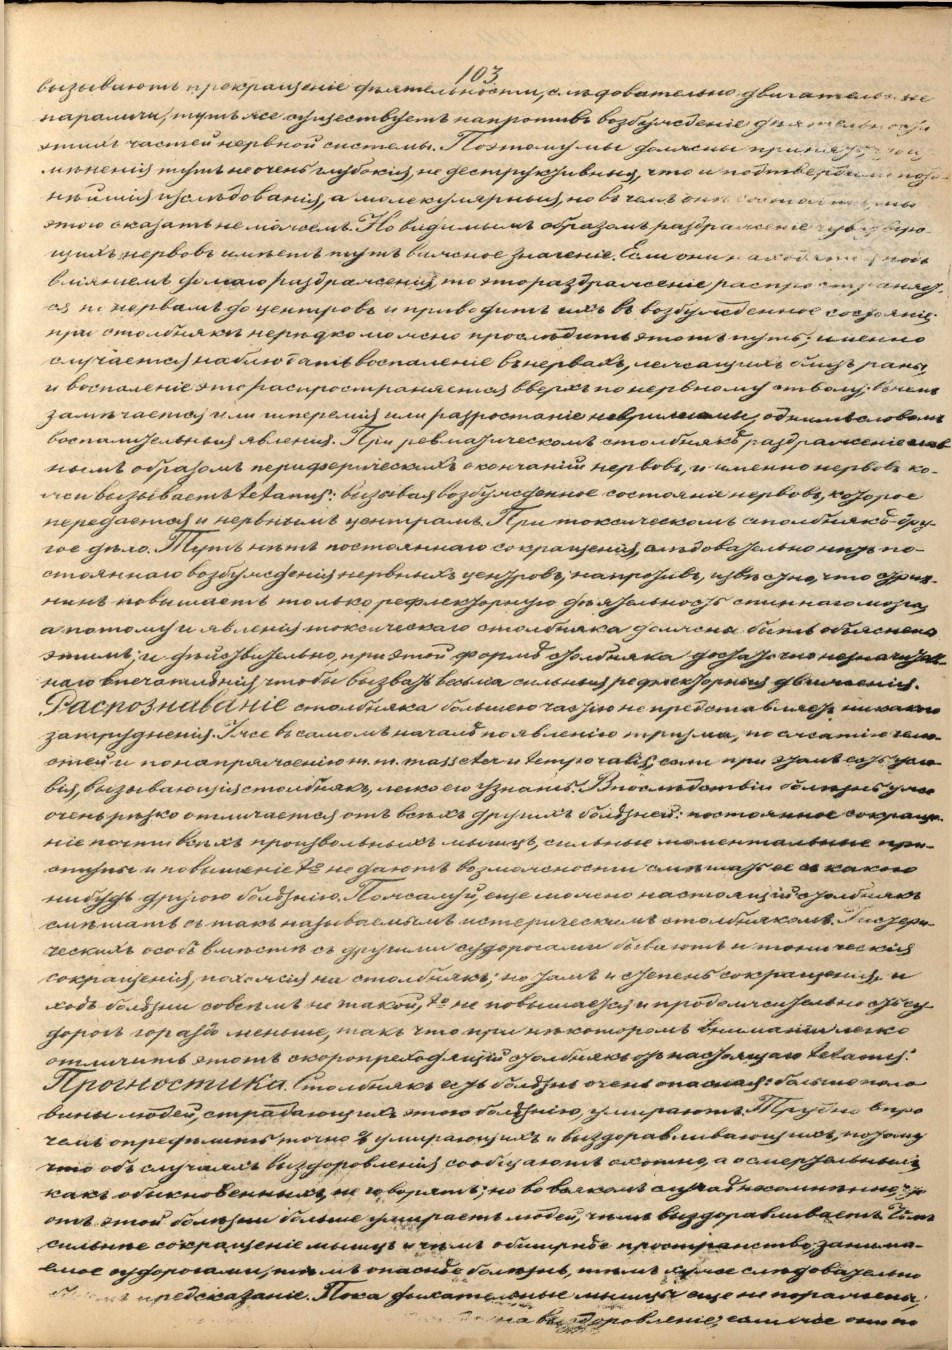 103
вызываютъ прекращеніе дѣятельности, слѣдовательно двигательные
параличи, тутъ же существуетъ напротивъ возбужденіе дѣятельности
этихъ частей нервной системы. Поэтому мы должны принять, что из-
мѣненія тутъ не очень глубокія, не деструктивныя, что и подтвердили позд-
нѣйшія изслѣдованія, а молекулярныя, но въ чемъ они состоятъ, мы
этого сказать не можемъ. Но видимымъ образомъ раздраженіе чувствую-
щихъ нервовъ имѣетъ тутъ важное значеніе. Если они находятся подъ
вліяніемъ долгаго раздраженія, то это раздраженіе распространяет-
ся по нервамъ до центровъ и приводитъ ихъ въ возбужденное состояніе;
при столбнякѣ нерѣдко можно прослѣдить этотъ путь; именно
случается наблюдать воспаленіе въ нервахъ, лежащихъ близъ раны
и воспаленіе это распространяется вверхъ по нервному стволу; въ немъ
замѣчается или гиперемія или разростаніе невриллемы, однимъ словомъ
воспалительныя явленія. При ревматическомъ столбнякѣ раздраженіе глав
нымъ образомъ периферическихъ окончаній нервовъ, и именно нервовъ ко-
жи вызываетъ tetanus: вызывая возбужденное состояніе нервовъ, которое
передается и нервнымъ центрамъ. При токсическомъ столбнякѣ дру-
гое дѣло. Тутъ нѣтъ постояннаго сокращенія, слѣдовательно нѣтъ по-
стояннаго возбужденія нервныхъ центровъ; напротивъ, извѣстно, что стрих-
нинъ повышаетъ только рефлекторную дѣятельность спиннаго мозга,
а потому и явленія токсическаго столбняка должна быть объяснена
этимъ; и дѣйствительно, при этой формѣ столбняка достаточно незначитель-
наго впечатлѣнія, чтобы вызвать весьма сильныя рефлекторныя движенія.
Распознаваніе столбняка большею частію не представляетъ никакого
затрудненія. Уже въ самомъ началѣ по явленію тризма, по сжатію челю-
стей и по напряженію m.m. masseter и temporalis, если при этомъ есть усло
вія, вызывающія столбнякъ, легко его узнать. Впослѣдствіи болѣзнь уже
очень рѣзко отличается отъ всѣхъ другихъ болѣзней: постоянное сокраще-
ніе почти всѣхъ произвольныхъ мышцъ, сильные моментальные при-
ступы и повышеніе t° не даютъ возможности смѣшать ее съ какою
нибудь другою болѣзнію. Пожалуй, еще можно настоящій столбнякъ
смѣшать съ такъ называемымъ истерическимъ столбнякомъ. У истери-
ческихъ особъ вмѣстѣ съ другими судорогами бываютъ и тоническія
сокращенія, похожія на столбнякъ; но тамъ и степень сокращенія, и
ходъ болѣзни совсѣмъ не такой, t° не повышается и продолжительность су-
дорогъ гораздо меньше, такъ что при нѣкоторомъ вниманіи легко
отличить этотъ скоропреходящій столбнякъ отъ настоящаго tetanus.
Прогностика. Столбнякъ есть болѣзнь очень опасная: больше поло
вины людей, страдающихъ этою болѣзнію, умираютъ. Трудно впро
чемъ опредѣлить точно % умирающихъ и выздоравливающихъ, потому
что объ случаяхъ выздоровленія сообщаютъ охотно, а о смертельныхъ,
какъ обыкновенныхъ, не говорятъ; но во всякомъ случаѣ несомнѣнно, что
отъ этой болѣзни больше умираетъ людей, чѣмъ выздоравливаетъ. Чѣмъ
сильнѣе сокращеніе мышцъ и чѣмъ обширнѣе пространство, занима-
емое судорогами, тѣмъ опаснѣе болѣзнь, тѣмъ хуже слѣдовательно
предсказаніе. Пока дыхательные мышцы еще не поражены,
на выздоровленіе; если же они по